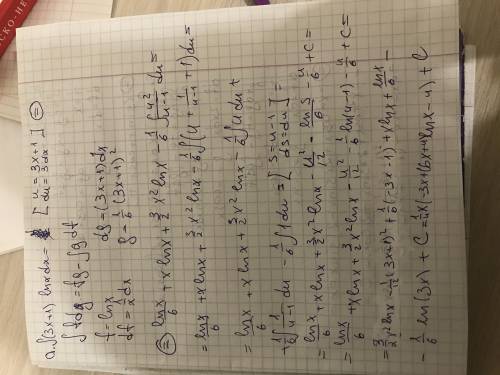 СКО-НЕ
a. ∫(3x+1) ln x dx = [ u = 3x+1
du = 3dx ] =
∫f dg = fg - ∫g df
f = ln x    dg = (3x+1)dx
df = 1/x dx    g = 1/6 (3x+1)²
= ln x/6 + x ln x + 3/2 x² ln x - 1/6 ∫ u²/(u-1) du =
= ln x/6 + x ln x + 3/2 x² ln x - 1/6 ∫(u + 1/(u-1) + 1) du =
= ln x/6 + x ln x + 3/2 x² ln x - 1/6 ∫u du +
+ 1/6 ∫ 1/(u-1) du - 1/6 ∫1 du = [ s = u-1
ds = du ] =
= ln x/6 + x ln x + 3/2 x² ln x - u²/12 - ln s/6 - u/6 + C =
= ln x/6 + x ln x + 3/2 x² ln x - u²/12 - 1/6 ln(u-1) - u/6 + C =
= 3/2 x² ln x - 1/12 (3x+1)² + 1/6 (-3x-1) + x ln x + ln x/6 -
- 1/6 ln(3x) + C = 1/4 x(-3x+(6x+4) ln x - 4) + C